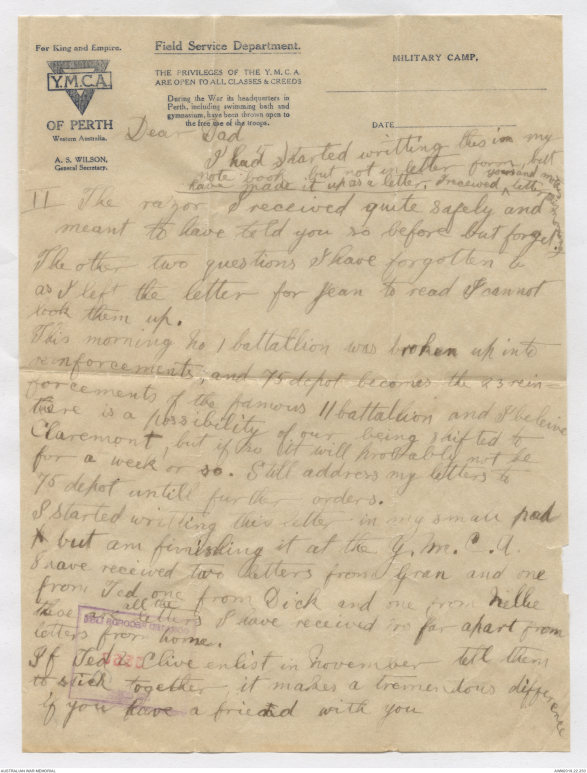 For King and Empire.
Y.M.C.A.
OF PERTH
Western Australia.
A. S. WILSON,
General Secretary.
Field Service Department.
THE PRIVILEGES OF THE Y.M.C.A.
ARE OPEN TO ALL CLASSES & CREEDS
During the War its headquarters in
Perth, including swimming bath and
gymnasium, have been thrown open to
the free use of the troops.
MILITARY CAMP,
DATE
Dear Dad
I had started writting this in my
note book but not in letter form, but
have made it up as a letter. I received yours and mothers letter
11 The razor I received quite safely and
meant to have told you so before but forgot.
The other two questions I have forgotten &
as I left the letter for Jean to read I cannot
look them up.
This morning No 1 battallion was broken up into
reinforcements, and 75 depot becomes the 23 rein=
forcements of the famous 11 battaluion and I beleive
there is a possibility of our being shifted to
Claremont, but if so it will probably not be
for a week or so. Still address my letters to
75 depot untill further orders.
I started writting this letter in my small pad
but am finishing it at the Y.M.C.A.
I have received two letters from Gran and one
from Ted one from Dick and one from Nellie
these are all the letters I have received so far apart from
letters from home.
If Ted & Clive enlist in November tell them
to stick together, it makes a tremendous difference
if you have a friend with you
AUSTRALIAN WAR MEMORIAL